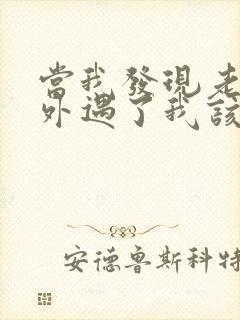 當我發現老
外遇了我該
安德魯斯科特